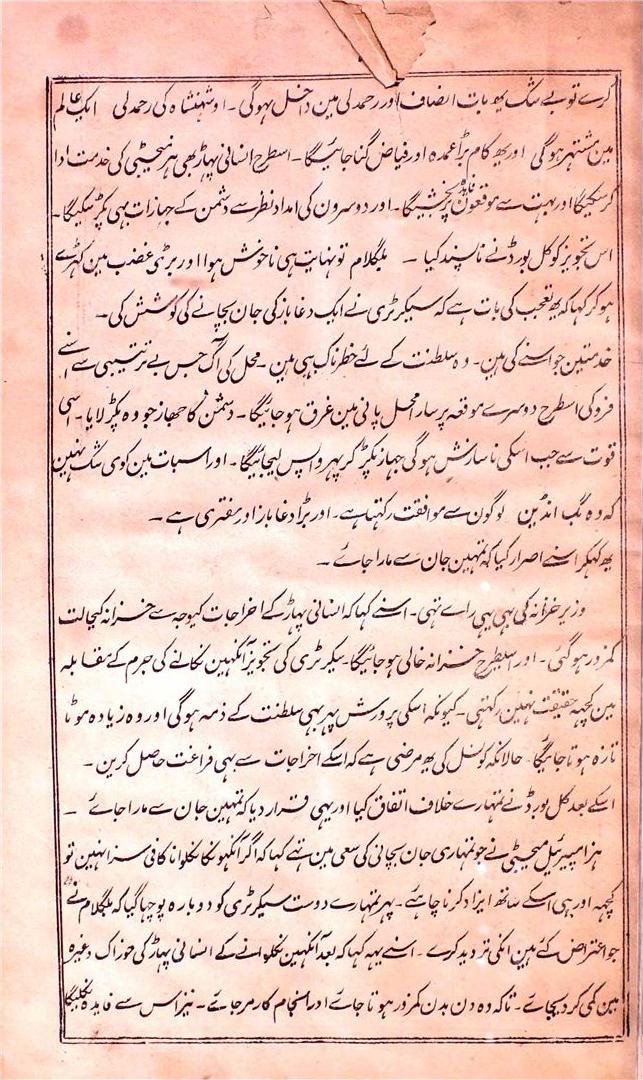 کرے تو بے شک یھ بات انصاف اور رحمدلی مین داخل ہوگی ۔ اور شہنشاہ کی رحمدلی ایک عالم
مین مشتہر ہوگی اور یھ کام بڑا عمدہ اور فیاض گنا جائیگا ۔ اسطرح انسانی پہاڑ بھی ہر میجیٹی کی خدمت ادا
کرسکیگا اور بہت سے موقعون پر فایدہ بخشیگا ۔ اور دوسرون کی امداد نظر سے دشمن کے جہازات بہی پکڑ سکیگا ۔
اس تجویز کو کل بورڈ نے ناپسند کیا ۔ بلگلام تو نہایت ہی ناخوش ہوا اور بڑی غضب مین کہڑے
ہو کر کہا کہ یھ تعجب کی بات ہے کہ سیکرٹری نے ایک دغا باز کی جان بچانے کی کوشش کی ۔
خدمتین جو اسنے کی ہین ۔ وہ سلطنت کے لئے خطرناک ہی ہین ۔ محل کی آگ جس بے ترتیبی سے اسنے
فرو کی اسطرح دوسرے موقعہ پر سارا محل پانی مین غرق ہو جائیگا ۔ دشمن کا جھاز جو وہ پکڑ لایا ۔ اسی
قوت سے جب اسکی ناسازش ہوگی جہاز پکڑ کر پہر واپس لیجائیگا ۔ اور اسبات مین کوی شک نہین
کہ وہ بگ انڈین لوگون سے موافقت رکہتا ہے ۔ اور بڑا دغا باز اور مفتری ہے ۔
یھ کہکر اسنے اصرار کیا کہ تمہین جان سے مارا جائے ۔
وزیر خزانہ کی بہی یہی راے تہی ۔ اسنے کہا کہ انسانی پہاڑ کے اخراجات کیوجہ سے خزانہ کیحالت
کمزور ہوگئی ۔ اور اسیطرح خزانہ خالی ہو جائیگا ۔ سیکرٹری کی تجویز آنکہین نکالنے کی جرم کے مقابلہ
مین کچہہ حقیقت نہین رکہتی ۔ کیونکہ اسکی پرورش پہر بہی سلطنت کے ذمہ ہوگی اور وہ زیادہ موٹا
تازہ ہوتا جائیگا ۔ حالانکہ کونسل کی یھ مرضی ہے کہ اسکے اخراجات سے بہی فراغت حاصل کرین ۔
اسکے بعد کل بورڈ نے تمہارے خلاف اتفاق کیا اور یہی قرار دیا کہ تمہین جان سے مارا جائے ۔
ہز امپیریل میجیٹی نے جو تمہاری جان بچانی کی سعی مین تہے کہا کہ اگر آنکہونکا نکلوانا کافی سزا نہین تو
کچہہ اور بہی اسکے ساتھ ایزاد کرنا چاہئے ۔ پہر تمہارے دوست سیکرٹری کو دوبارہ پوچہا گیا کہ بلگلام نے
جو اعتراض کئے ہین انکی تردید کرے ۔ اسنے یہہ کہا کہ بعد آنکہین نکلوانے کے انسانی پہاڑ کی خوراک وغیرہ
مین کمی کر دیجائے ۔ تاکہ وہ دن بدن کمزور ہوتا جائے اور انجام کار مر جائے ۔ نیز اس سے فایدہ نکلیگا